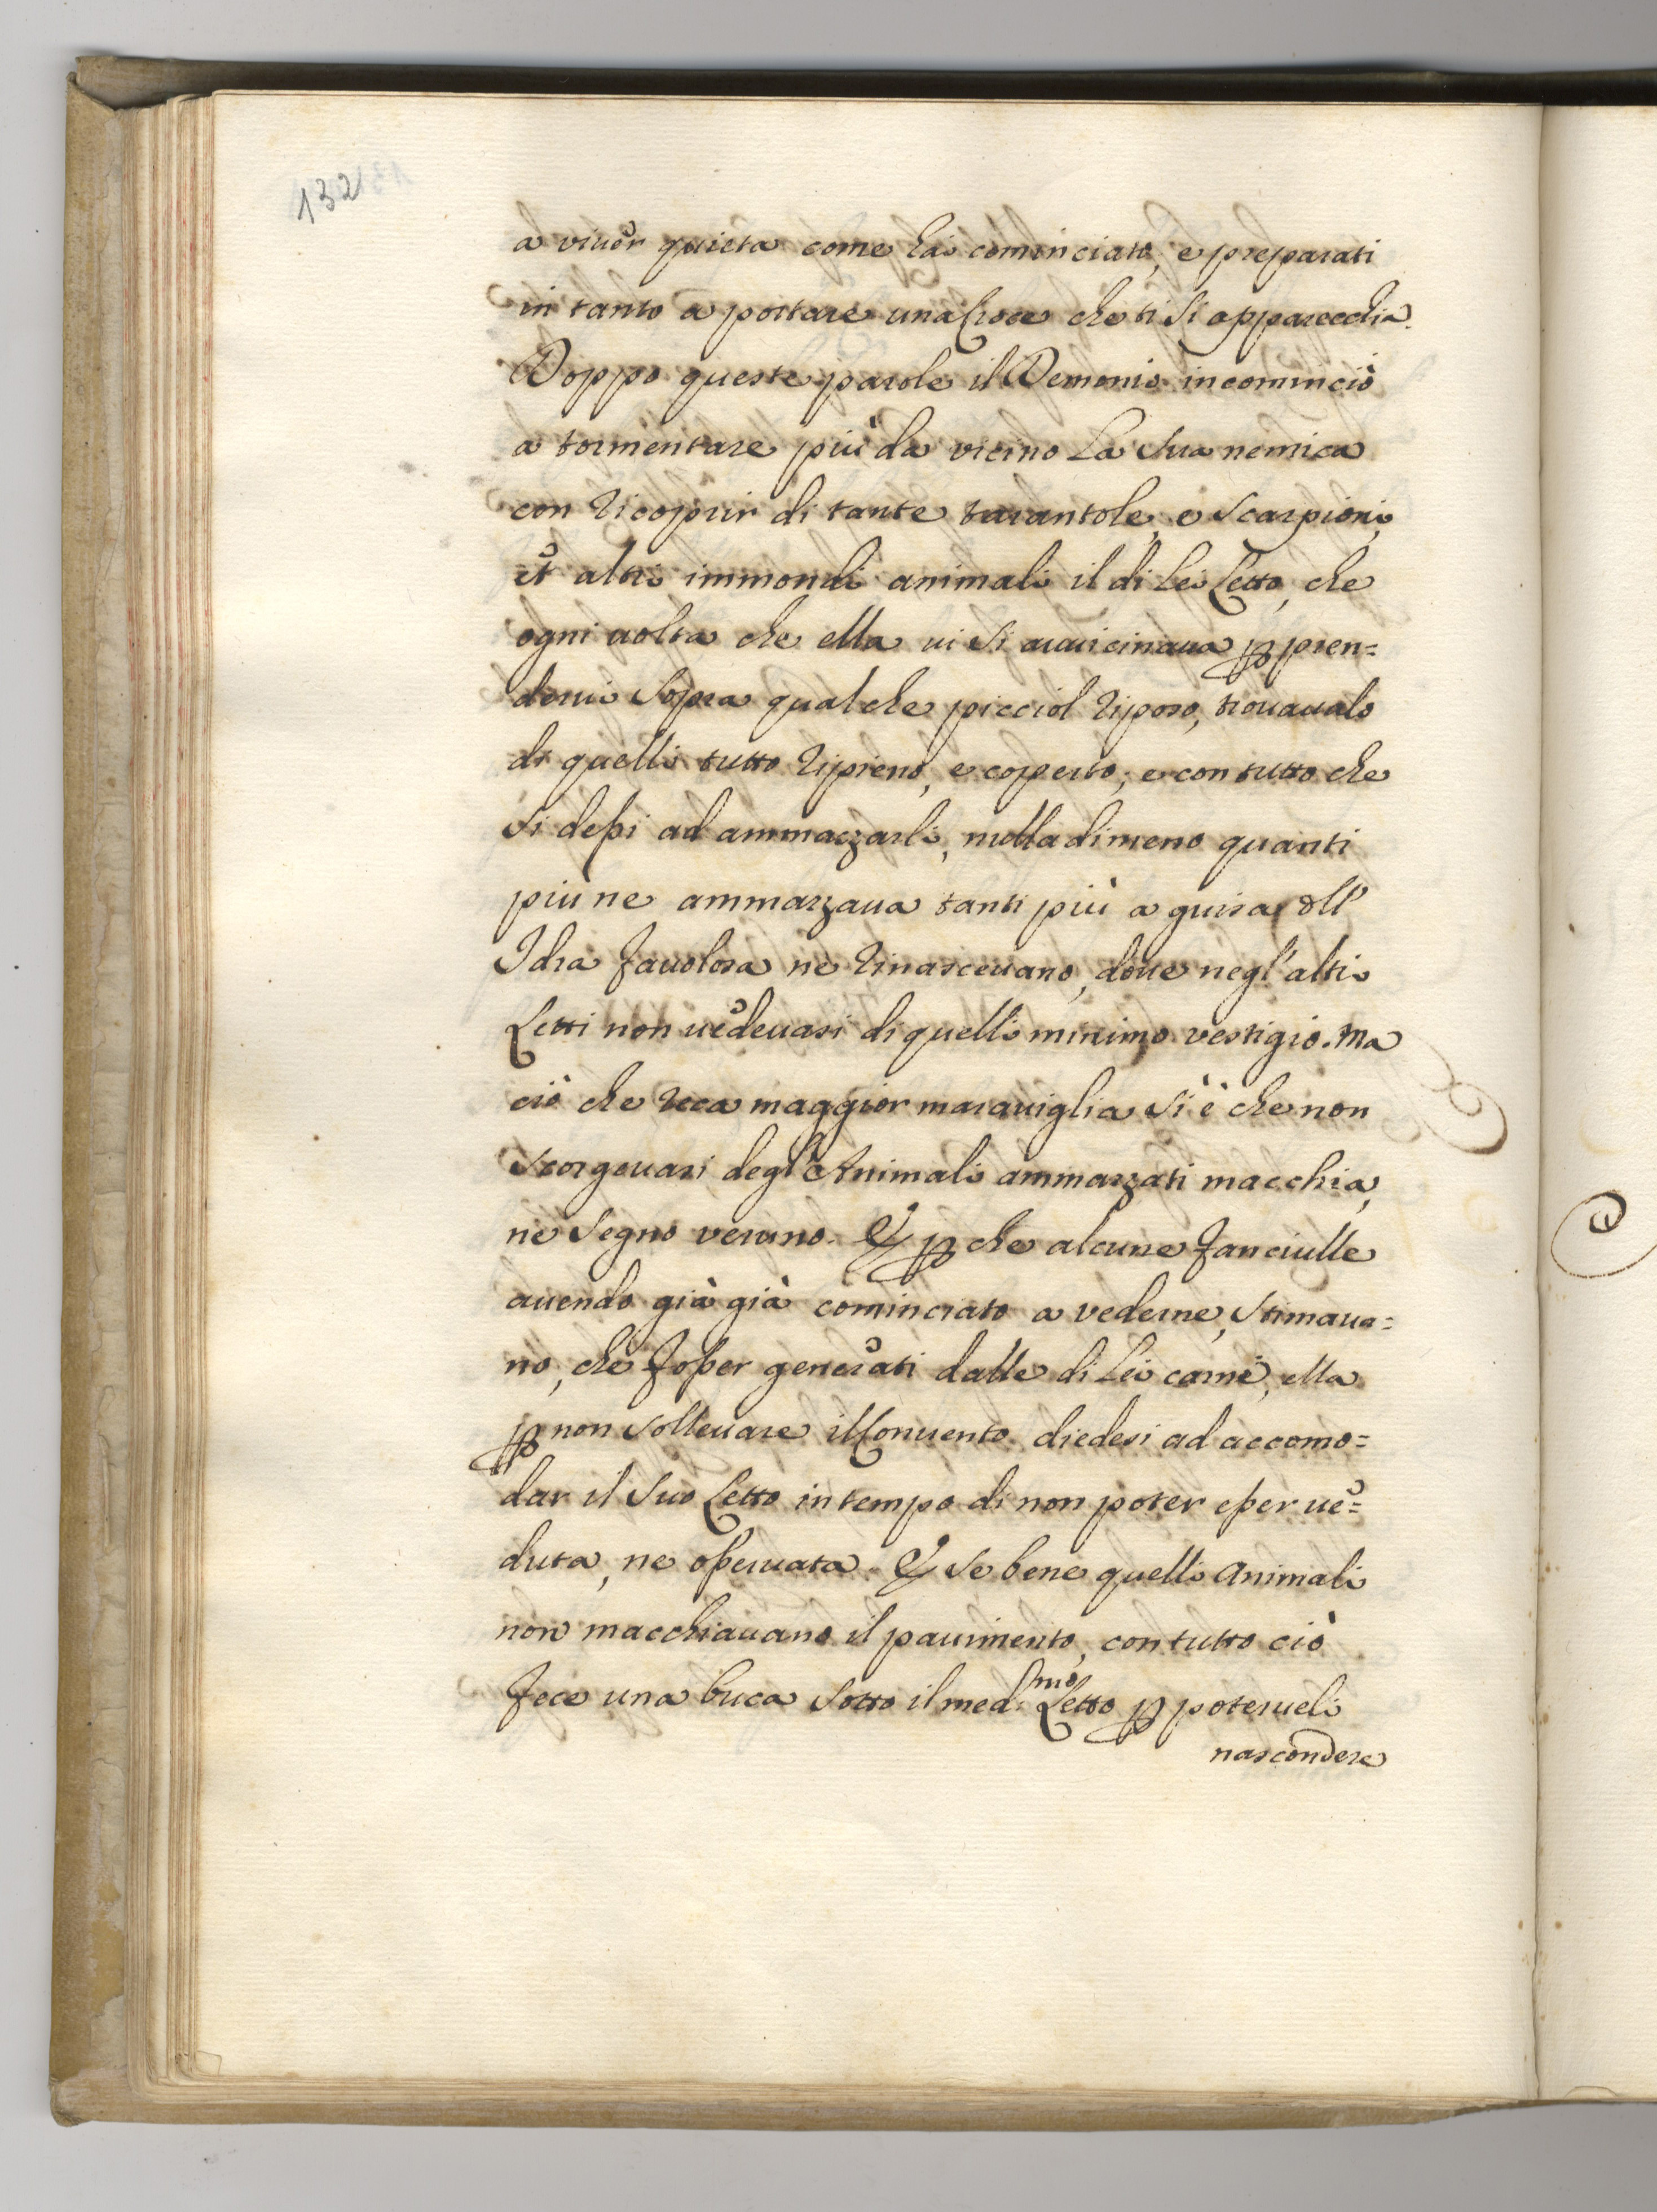 132
a viuer quieta come hai cominciato, e preparati
in tanto a portare una Croce che ti si apparecchia.
Doppo queste parole il Demonio incominciò
a tormentare più da vicino la sua nemica
con ricoprir di tante tarantole, e scarpioni,
et altri immondi animali il di lei letto, che
ogni uolta che ella ui si auuicinaua ꝑ pren=
derui sopra qualche picciol riposo, trouaualo
di quelli tutto ripieno, e coperto; e con tutto che
si deßi ad ammazzarli, nulladimeno quanti
più ne ammazzaua tanti più a guisa dll'
Idra fauolosa ne rinasceuano, doue negl'altri
Letti non uedeuasi di quelli minimo vestigio. Ma
ciò che reca maggior marauiglia si è che non
scorgeuasi degl'Animali ammazzati macchia,
ne segno veruno. E ꝑche alcune fanciulle
auendo già già cominciato a vederne, stimaua=
no, che foßer generati dalle di lei carni, ella
ꝑ non solleuare il Conuento diedesi ad accomo=
dar il suo letto in tempo di non poter eßer ue=
duta, ne oßeruata. E se bene quelli Animali
non macchiauano il pauimento, con tutto ciò
fece una buca sotto il med.mo Letto ꝑ poterueli
nascondere